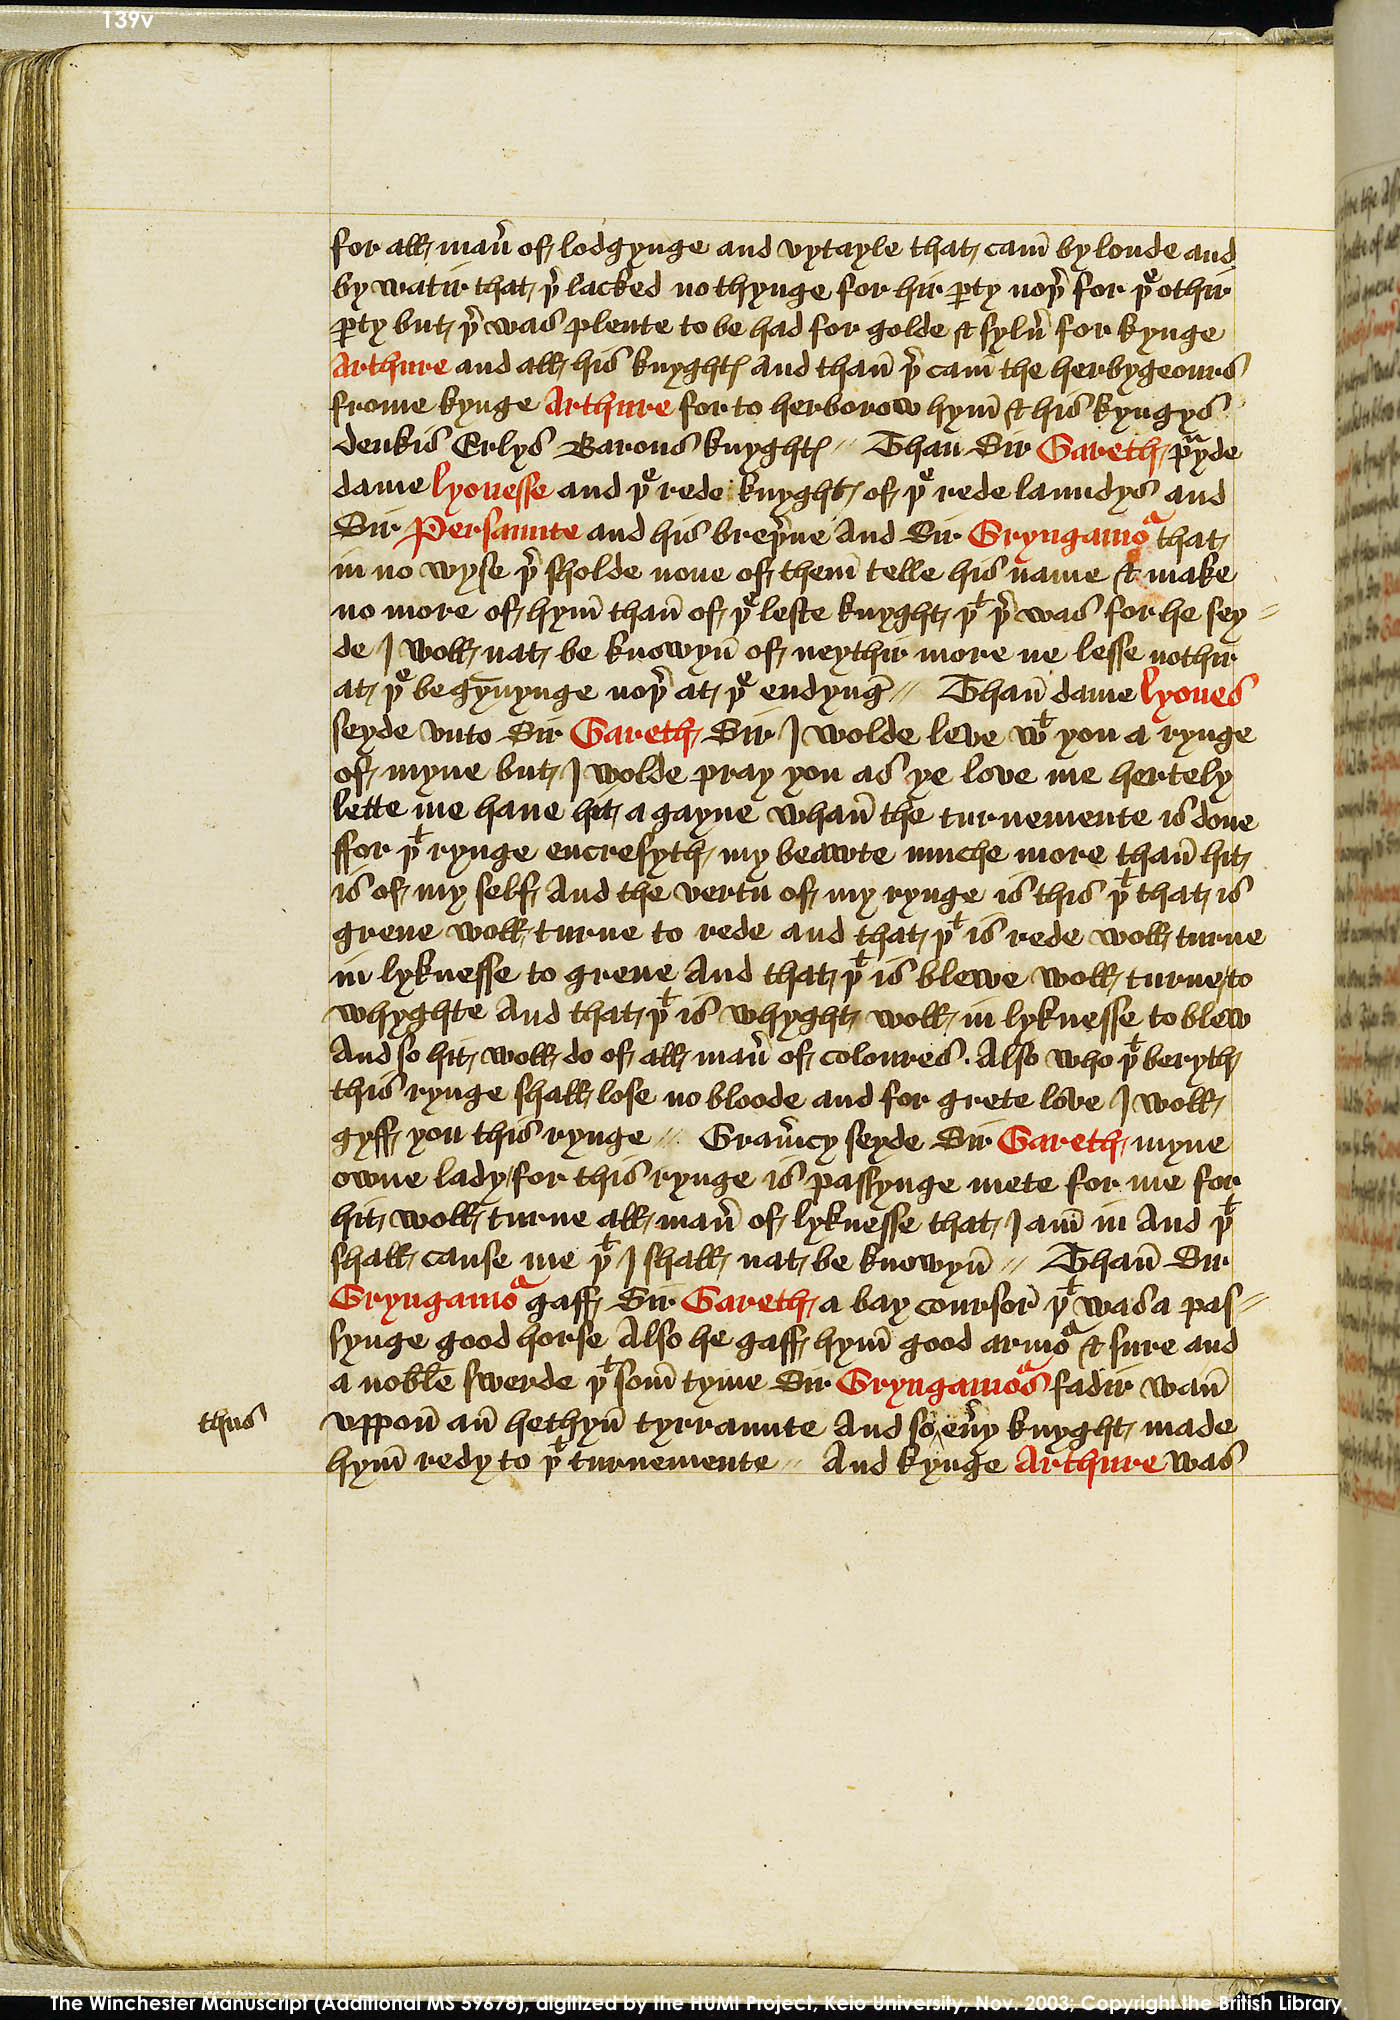 139v
for all man̄ of lodgynge and vytayle that cam̄ by londe and
by watir that þr̄ lacked no thynge for hir ꝑty noþr̄ for þͤ othir
ꝑty but þr̄ was plente to be had for golde & sylū for kynge
Arthure and all his knyghtꝭ And than̄ þr̄ cam̄ the herbygeours
frome kynge Arthure for to herborow hym̄ & his kyngys
deukis Erlys Barons knyghtꝭ // Than Sir Gareth pᷓyde
dame lyonesse and þͤ rede knyght of þͤ rede laundys and
Sir Persaunte and his breþr̄ne And Sir Gryngamoᷓ that
in no wyse þr̄ sholde none of them̄ telle his name & make
no more of hym̄ than̄ of þͤ leste knyght þᵗ þr̄ was for he sey=
de I woll nat be knowyn̄ of neythir more ne lesse nothir
at þͤ begȳnynge noþr̄ at þͤ endynḡ // Than̄ dame lyones
seyde vnto Sir Gareth Sir I wolde leve wᵗ you a rynge
of myne but I wolde pray you as ye love me hertely
lette me haue hit a gayne whan̄ the turnemente is done
ffor þᵗ rynge encresyth my beawte muche more than̄ hit
is of my self And the vertu of my rynge is this þᵗ that is
grene woll turne to rede and that þᵗ is rede woll turne
in lyknesse to grene And that þᵗ is blewe woll turne to
whyghte And that þᵗ is whyght woll in lyknesse to blew
And so hit woll do of all man̄ of coloures. Also who þᵗ beryth
this rynge shall lose no bloode and for grete love I woll
gyff you this rynge // Gram̄cy seyde Sir Gareth myne
owne lady for this rynge is passynge mete for me for
hit woll turne all man̄ of lyknesse that I am̄ in And þᵗ
shall cause me þᵗ I shall nat be knowyn̄ // Than̄ Sir
Gryngamoᷓ gaff Sir Gareth a bay coursor̄ þᵗ was a pas=
synge good horse Also he gaff hym̄ good armoᷓ & sure and
a noble swerde þᵗ som̄ tyme Sir Gryngamoᷓs fadir wan̄
thus
vppon̄ an̄ hethyn̄ tyrraunte And so ‸ eūy knyght made
hym̄ redy to þᵗ turnemente // And kynge Arthure was
The Winchester Manuscript (Additional MS 59678), digitized by the HUMI Project, Keio University, Nov. 2003; Copyright the British Library.